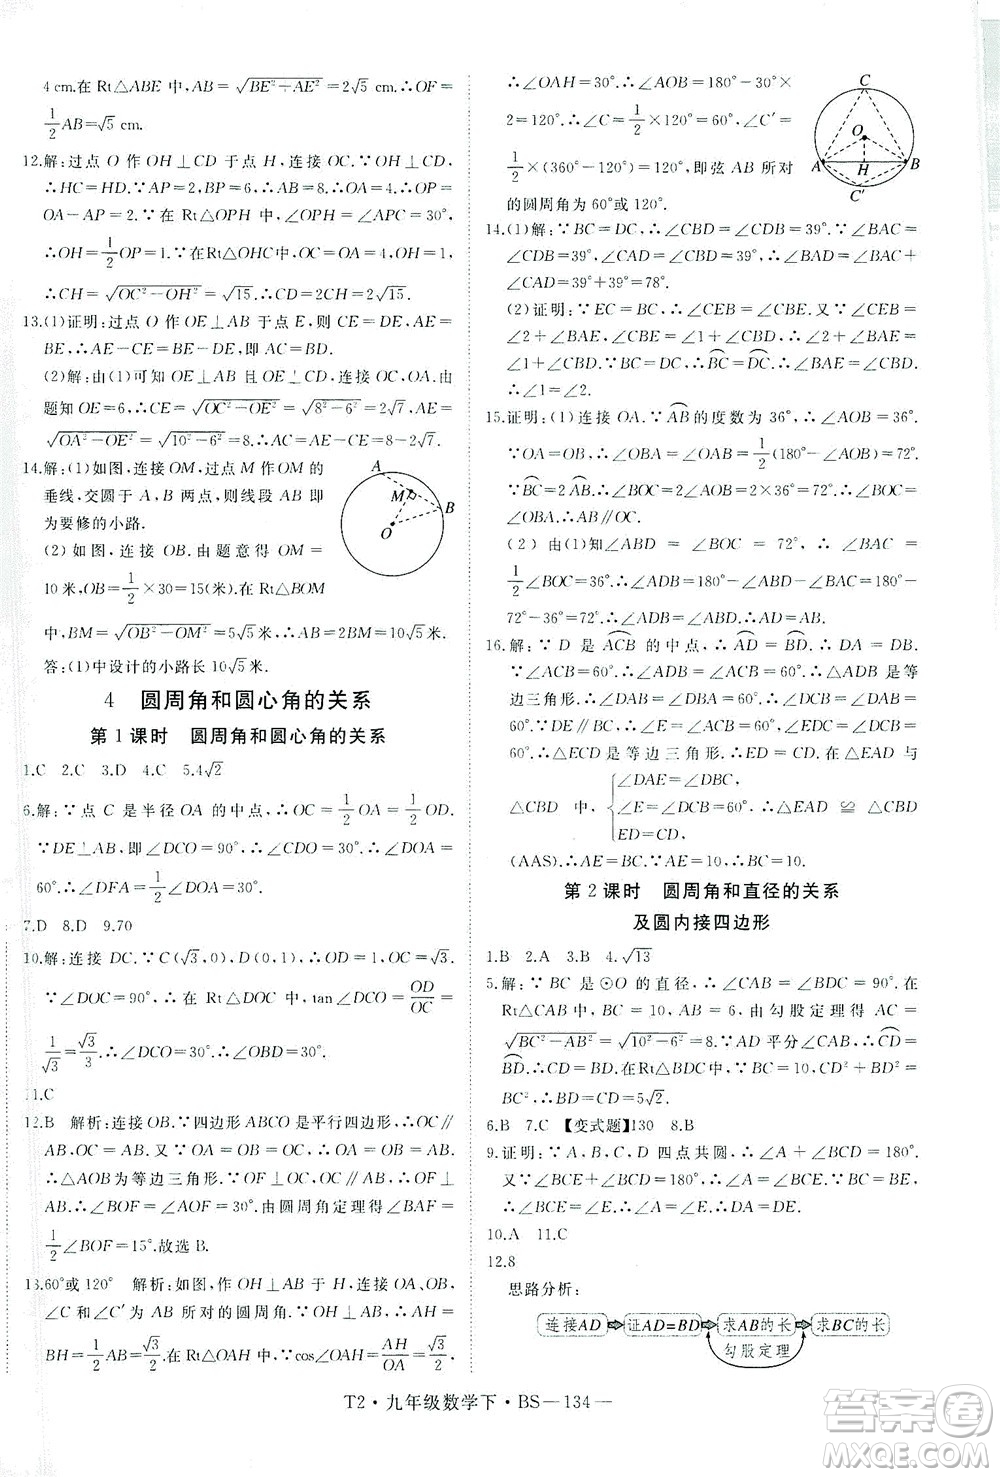 4 cm.在 Rt△ABE 中,AB=√(BE²-AE²)=2√5 cm.∴OF=
1/2 AB=√5 cm.
12.解:过点 O 作 OH⊥CD 于点 H,连接 OC.∵OH⊥CD,
∴HC=HD.∵AP=2,BP=6,∴AB=8.∴OA=4.∴OP=
OA-AP=2.∵在 Rt△OPH 中,∠OPH=∠APC=30°,
∴OH=1/2 OP=1.∵在 Rt△OHC 中,OC=4,OH=1,
∴CH=√(OC²-OH²)=√15.∴CD=2CH=2√15.
13.(1)证明:过点 O 作 OE⊥AB 于点 E,则 CE=DE,AE=
BE,∴BE-DE=AE-CE,即 AC=BD.
(2)解:由(1)可知 OE⊥AB 且 OE⊥CD,连接 OC,OA,由
题知 OE=6,∴CE=√(OC²-OE²)=√(8²-6²)=2√7,AE=
√(OA²-OE²)=√(10²-6²)=8.∴AC=AE-CE=8-2√7.
14.解:(1)如图,连接 OM,过点 M 作 OM 的
垂线,交圆于 A,B 两点,则线段 AB 即
为要修的小路.
(2)如图,连接 OB.由题意得 OM=
10 米,OB=1/2×30=15(米).在 Rt△BOM
中,BM=√(OB²-OM²)=5√5 米,∴AB=2BM=10√5 米.
答:(1)中设计的小路长 10√5 米.
A
M
B
O
4 圆周角和圆心角的关系
第 1 课时 圆周角和圆心角的关系
1.C 2.C 3.D 4.C 5.4√2
6.解:∵点 C 是半径 OA 的中点,∴OC=1/2 OA=1/2 OD.
∵DE⊥AB,即∠DCO=90°,∴∠CDO=30°.∴∠DOA=
60°.∴∠DFA=1/2∠DOA=30°.
7.D 8.D 9.70
10.解:连接 DC.∵C(√3,0),D(0,1),∴OD=1,OC=√3.
∵∠DOC=90°,∴在 Rt△DOC 中,tan∠DCO=OD/OC=
1/√3=√3/3.∴∠DCO=30°,∴∠OBD=30°.
11.C
12.B 解析:连接 OB.∵四边形 ABCO 是平行四边形,∴OC∥
AB,OC=AB.∵OA=OB=OC,∴OA=OB=AB,
∴△AOB为等边三角形.∵OF⊥OC,OC∥AB,∴OF⊥
AB,∴∠BOF=∠AOF=30°.由圆周角定理得∠BAF=
1/2∠BOF=15°.故选 B.
13.60°或 120° 解析:如图,作 OH⊥AB 于 H,连接 OA,OB,
∠C 和∠C′为 AB 所对的圆周角.∵OH⊥AB,∴AH=
BH=1/2AB=√3/2.在 Rt△OAH 中,∵cos∠OAH=AH/OA=√3/2,
∴∠OAH=30°,∴∠AOB=180°-30°×
2=120°.∴∠C=1/2×120°=60°,∠C′=
1/2×(360°-120°)=120°.即弦 AB 所对
的圆周角为 60°或 120°.
C
O
A
H
B
C′
14.(1)解:∵BC=DC,∴∠CBD=∠CDB=39°.∵∠BAC=
∠CDB=39°,∠CAD=∠CBD=39°,∴∠BAD=
∠BAC+∠CAD=39°+39°=78°.
(2)证明:∵EC=BC,∴∠CEB=∠CBE.又∵∠CEB=
∠2+∠BAE,∠CBE=∠1+∠CBD,∴∠2+∠BAE=
∠1+∠CBD.∵BC=DC,∴BC=DC.∴∠BAE=∠CBD.
∴∠1=∠2.
15.证明:(1)连接 OA.∵AB的度数为 36°,∴∠AOB=36°.
∵OA=OB,∴∠OAB=∠OBA=1/2(180°-∠AOB)=72°.
∵BC=2AB,∴∠BOC=2∠AOB=2×36°=72°.∴∠BOC=
∠OBA.∴AB∥OC.
(2)由(1)知∠BOC=72°,∴∠BAC=
1/2∠BOC=36°.∵∠OBA=72°,∴∠ADB=180°-36°-
72°-36°=∠ADB.∴∠ADB=∠ABO.
16.解:∵D 是ACB的中点,∴AD=BD.∴DA=DB.
∵∠ACB=60°,∴∠ADB=∠ACB=60°,∴△ADB是等
边三角形.∴∠DAB=∠DBA=60°.∴∠DCB=∠DAB=
60°.∵DE∥BC,∴∠E=∠ACB=60°.∴∠DCB=∠E.
∴△ECD 是等边三角形,∴ED=CD.在△EAD 与
△CBD 中,
∠DAE=∠DBC,
∠E=∠DCB=60°,∴△EAD≌△CBD
ED=CD,
(AAS).∴AE=BC.∵AE=10,∴BC=10.
第 2 课时 圆周角和直径的关系
及圆内接四边形
1.B 2.A 3.B 4.√13
5.解:∵BC 是⊙O 的直径,∴∠CAB=∠BDC=90°.在
Rt△CAB 中,∵BC=10,AB=6,∴由勾股定理得 AC=
√(BC²-AB²)=√(10²-6²)=8.∵AD 平分∠CAB,∴CD=
BD.∴CD=BD.在Rt△BDC 中,∵BC=10,CD²+BD²=
BC²,∴BD=CD=5√2.
6.B 7.C 【变式题】130 8.B
9.证明:∵A,B,C,D 四点共圆,∴∠A+∠BCD=180°.
又∵∠BCE+∠BCD=180°,∴∠A=∠BCE.∵BC=BE,
∴∠BCE=∠E.∴∠A=∠E.∴AD=DE.
10.A 11.C
12.8
思路分析:
连接AD 证AD=BD 求AB的长 求BC的长
勾股定理
T2·九年级数学下·BS—134—
答案圈
MXQE.COM